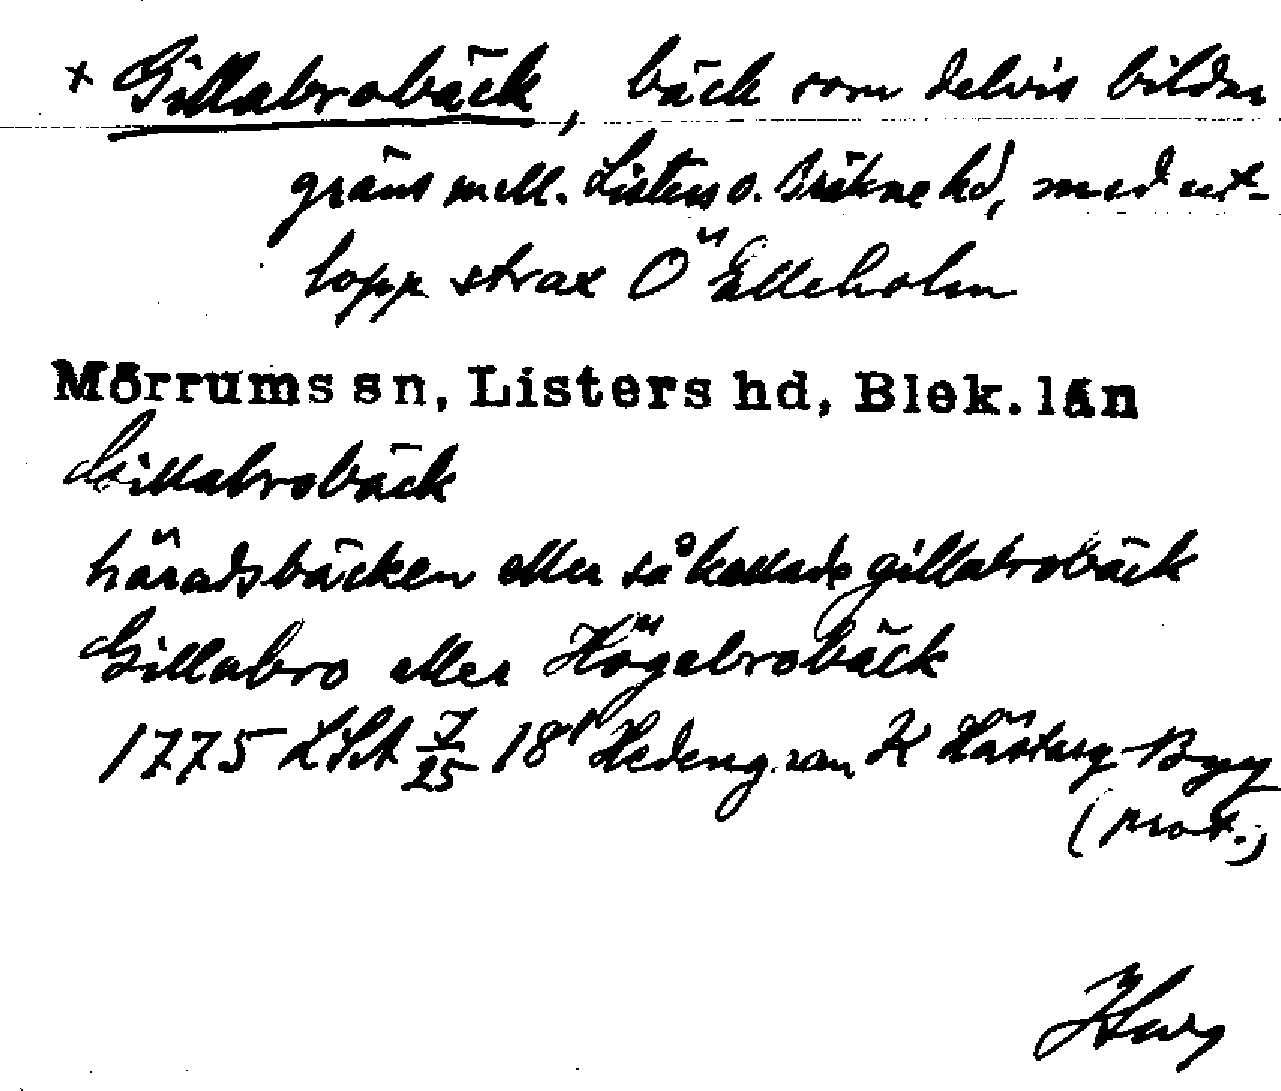 × Gillabrobäck, bäck som delvis bildar
gräns mell. Listers o. Bräkne hd, med ut-
lopp strax Ö Elleholm
Mörrums sn, Listers hd, Blek. län
Gillabrobäck
häradsbäcken eller så kallade gillabrobäck
Gillabro eller Högabrobäck
1775 LSA 7/25 18
(prot.)